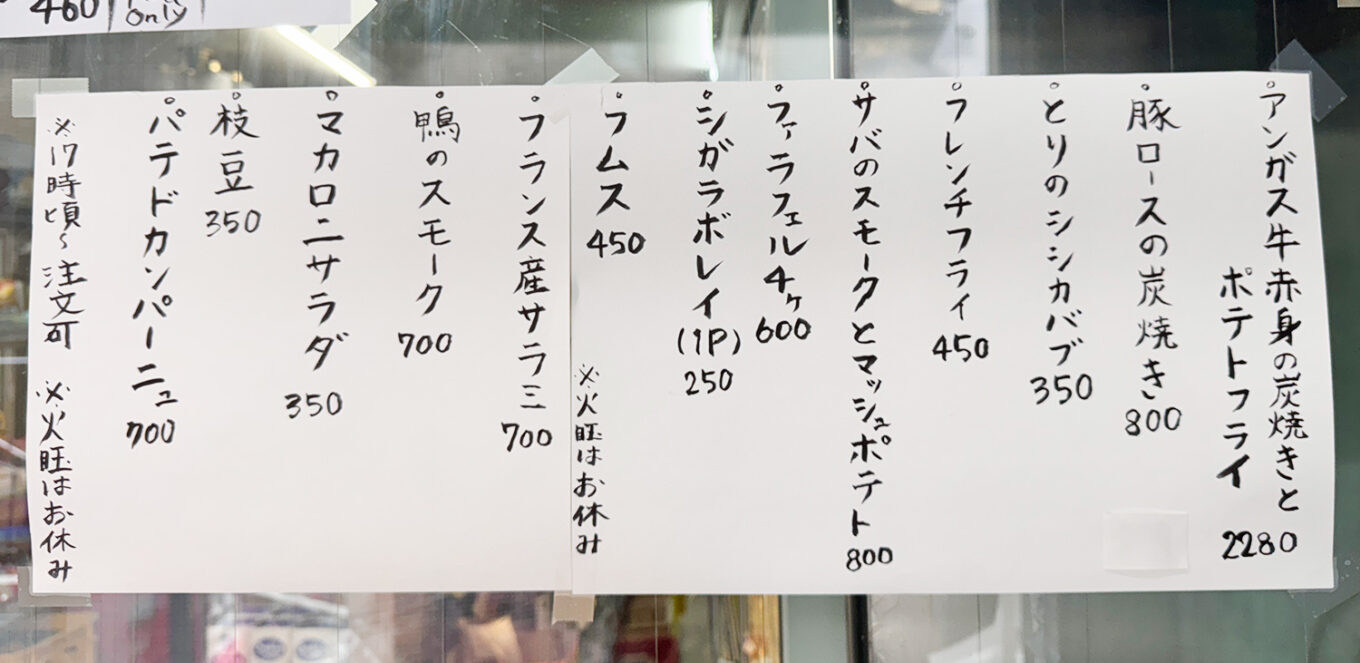 460
only
。アンガス牛赤身の炭焼きと
ポテトフライ
2280
。豚ロースの炭焼き
800
。とりのシシカバブ
350
。フレンチフライ
450
。サバのスモークとマッシュポテト
800
。ファラフェル4ヶ
600
。シガラボレイ
(1P)
250
。フムス
450
※火曜はお休み
。フランス産サラミ
700
。鴨のスモーク
700
。マカロニサラダ
350
。枝豆
350
。パテドカンパーニュ
700
※17時頃〜注文可 ※火曜はお休み